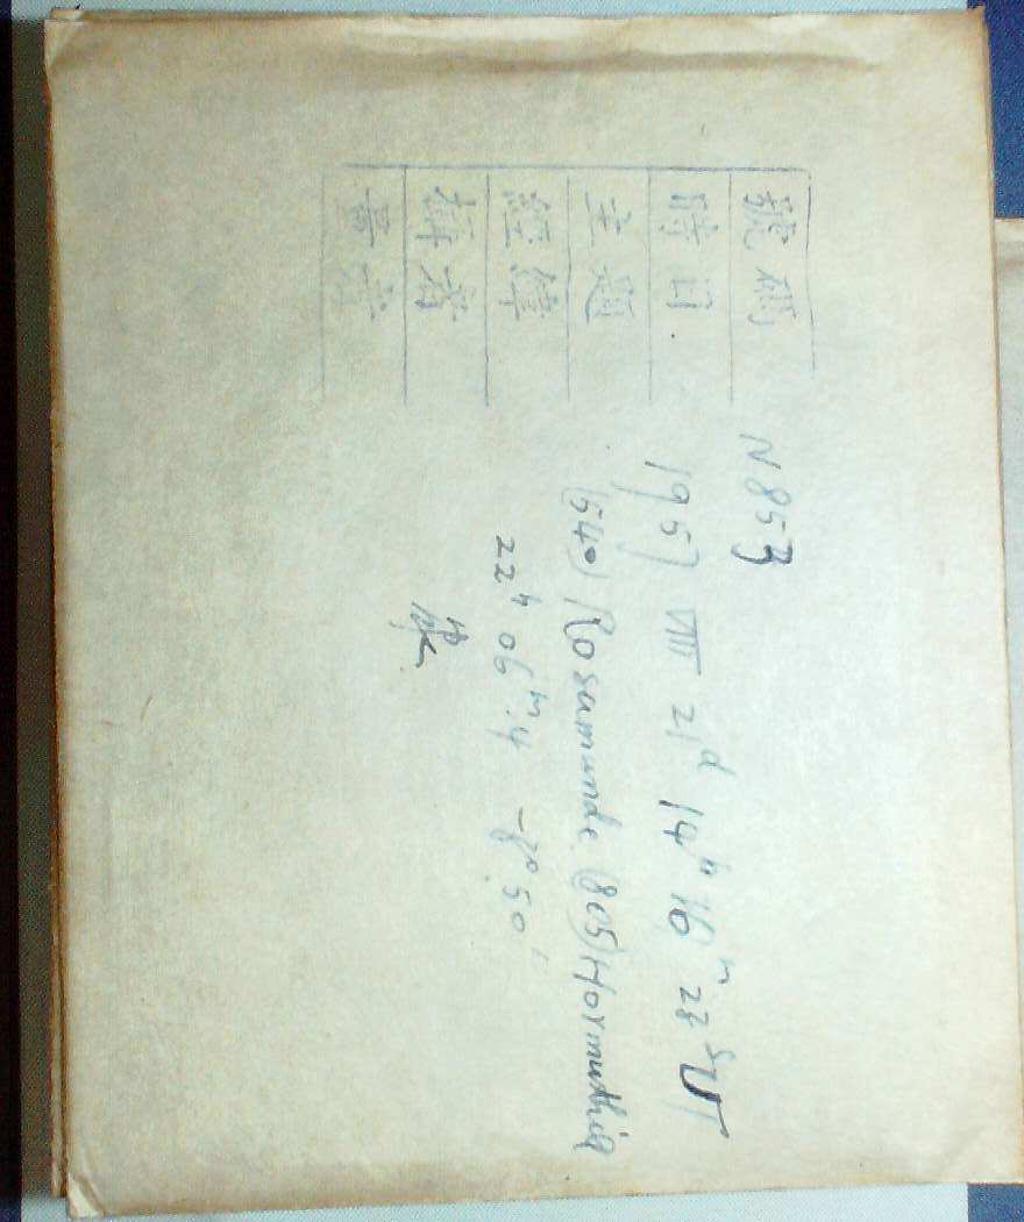 號碼 N 853
時日 1957 VIII 21d 14h 16m 28s UT
主題 (540) Rosamunde (805) Hormuthia
經緯 22h 06m.4 -8° 50′